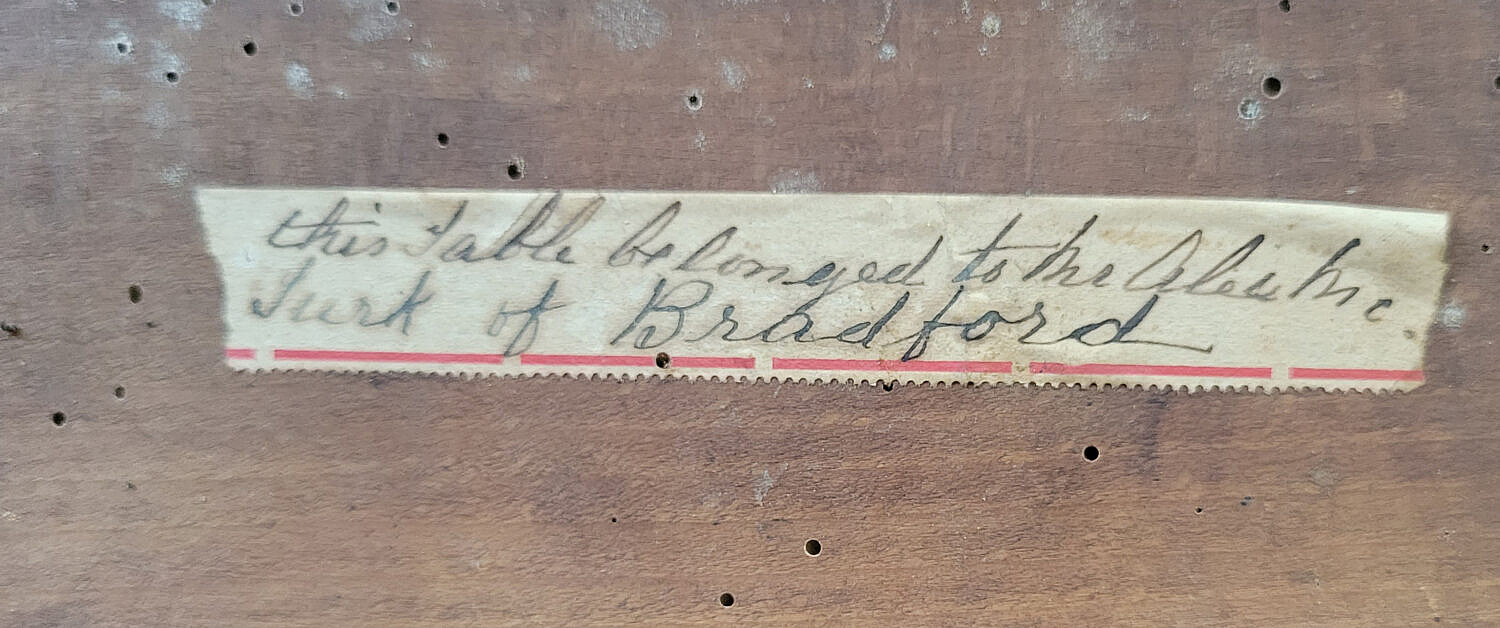 this Table belonged to Mr Alex Mc
Turk of Bradford